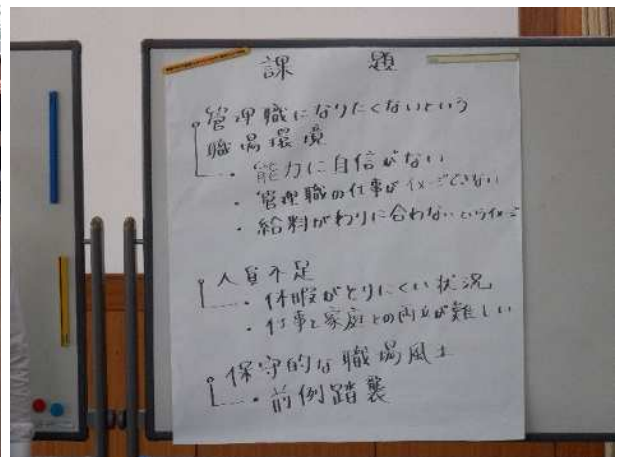 課題
管理職になりたくないという
職場環境
・能力に自信がない
・管理職の仕事がイメージできない
・給料がわりに合わないというイメージ
人員不足
・休暇がとりにくい状況
・仕事と家庭との両立が難しい
保守的な職場風土
・前例踏襲